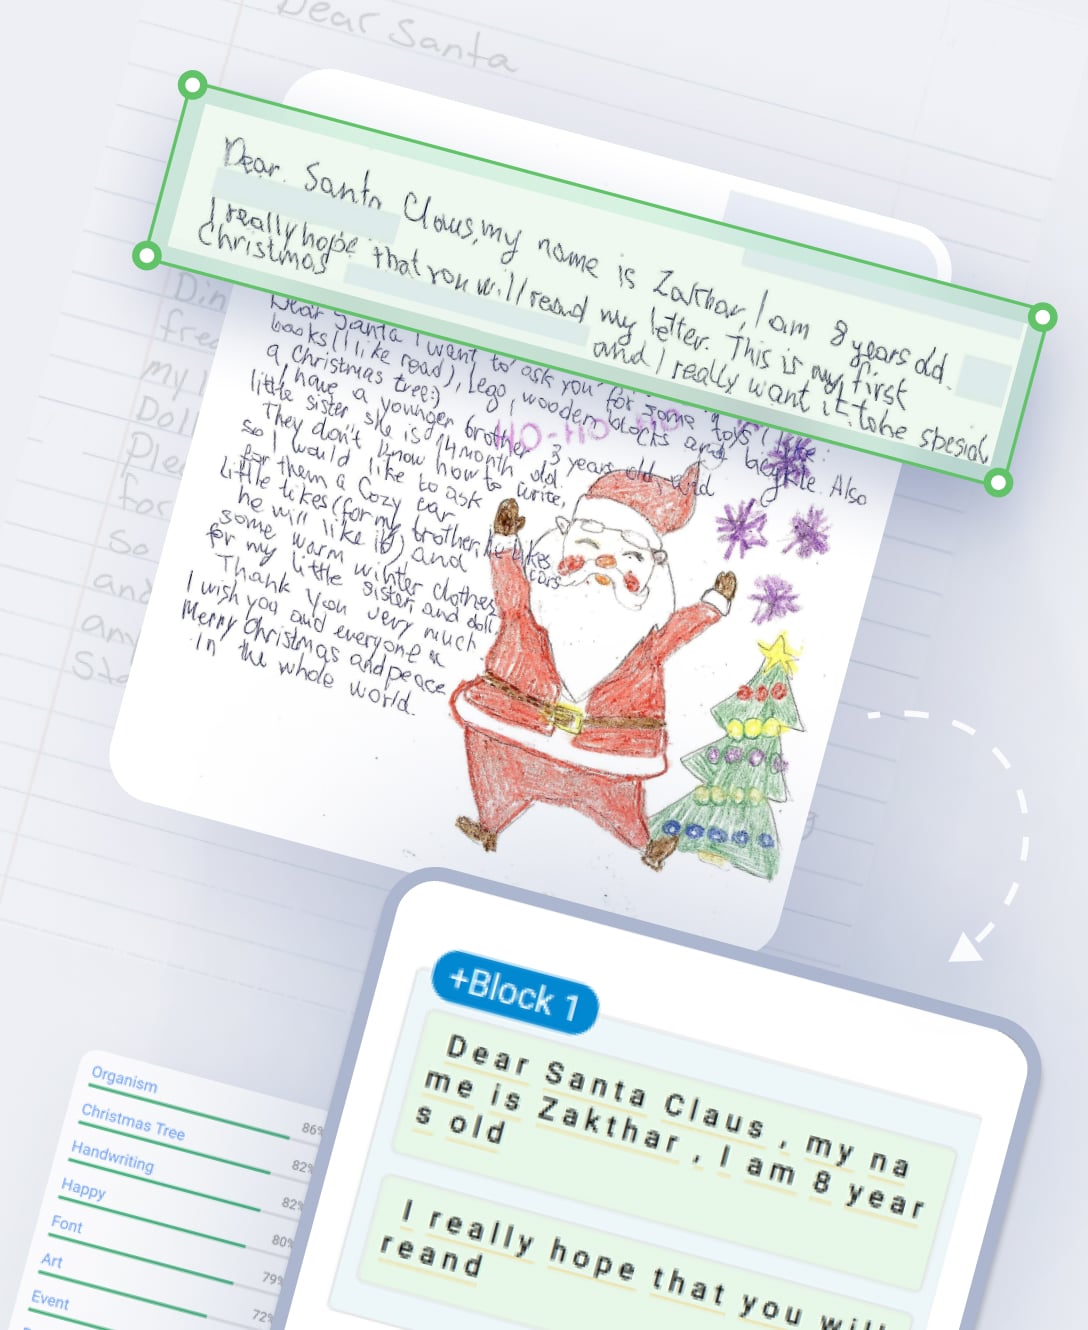 Dear Santa
Dear Santa Claus, my name is Zakthar, I am 8 years old.
I really hope that you will reand my letter. This is my first
Christmas and I really want it tobe spesial
Dear Santa I want to ask you for some toys I like
books (I like road), Lego, wooden blocks and bicycle. Also
a christmas tree:)
HO-HO-HO
I have a younger brother 3 years old, and
little sister she is 14 month old.
They don't know how to write,
so I would like to ask
for them a Cozy car
little tikes (for my brother, he likes
he will like it) and cars
some warm winter clothes
for my little sister and doll.
Thank you very much.
I wish you and everyone a
Merry Christmas and peace
in the whole world.
Din
free
my
Doll
Plea
for
So
and
any
Sta
+Block 1
Dear Santa Claus , my na
me is Zakthar , I am 8 year
s old
I really hope that you will
reand
Organism 86%
Christmas Tree 82%
Handwriting 82%
Happy 80%
Font 79%
Art 72%
Event